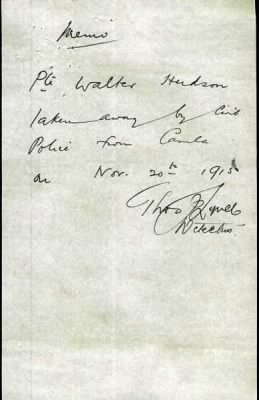 Memo
Pte Walter Hudson
taken away by Civil
Police from Camb
on Nov. 20th 1915
Thos
Detective.